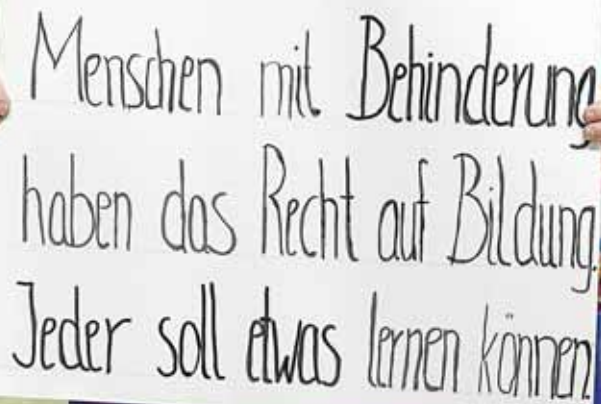 Menschen mit Behinderung
haben das Recht auf Bildung.
Jeder soll etwas lernen können.